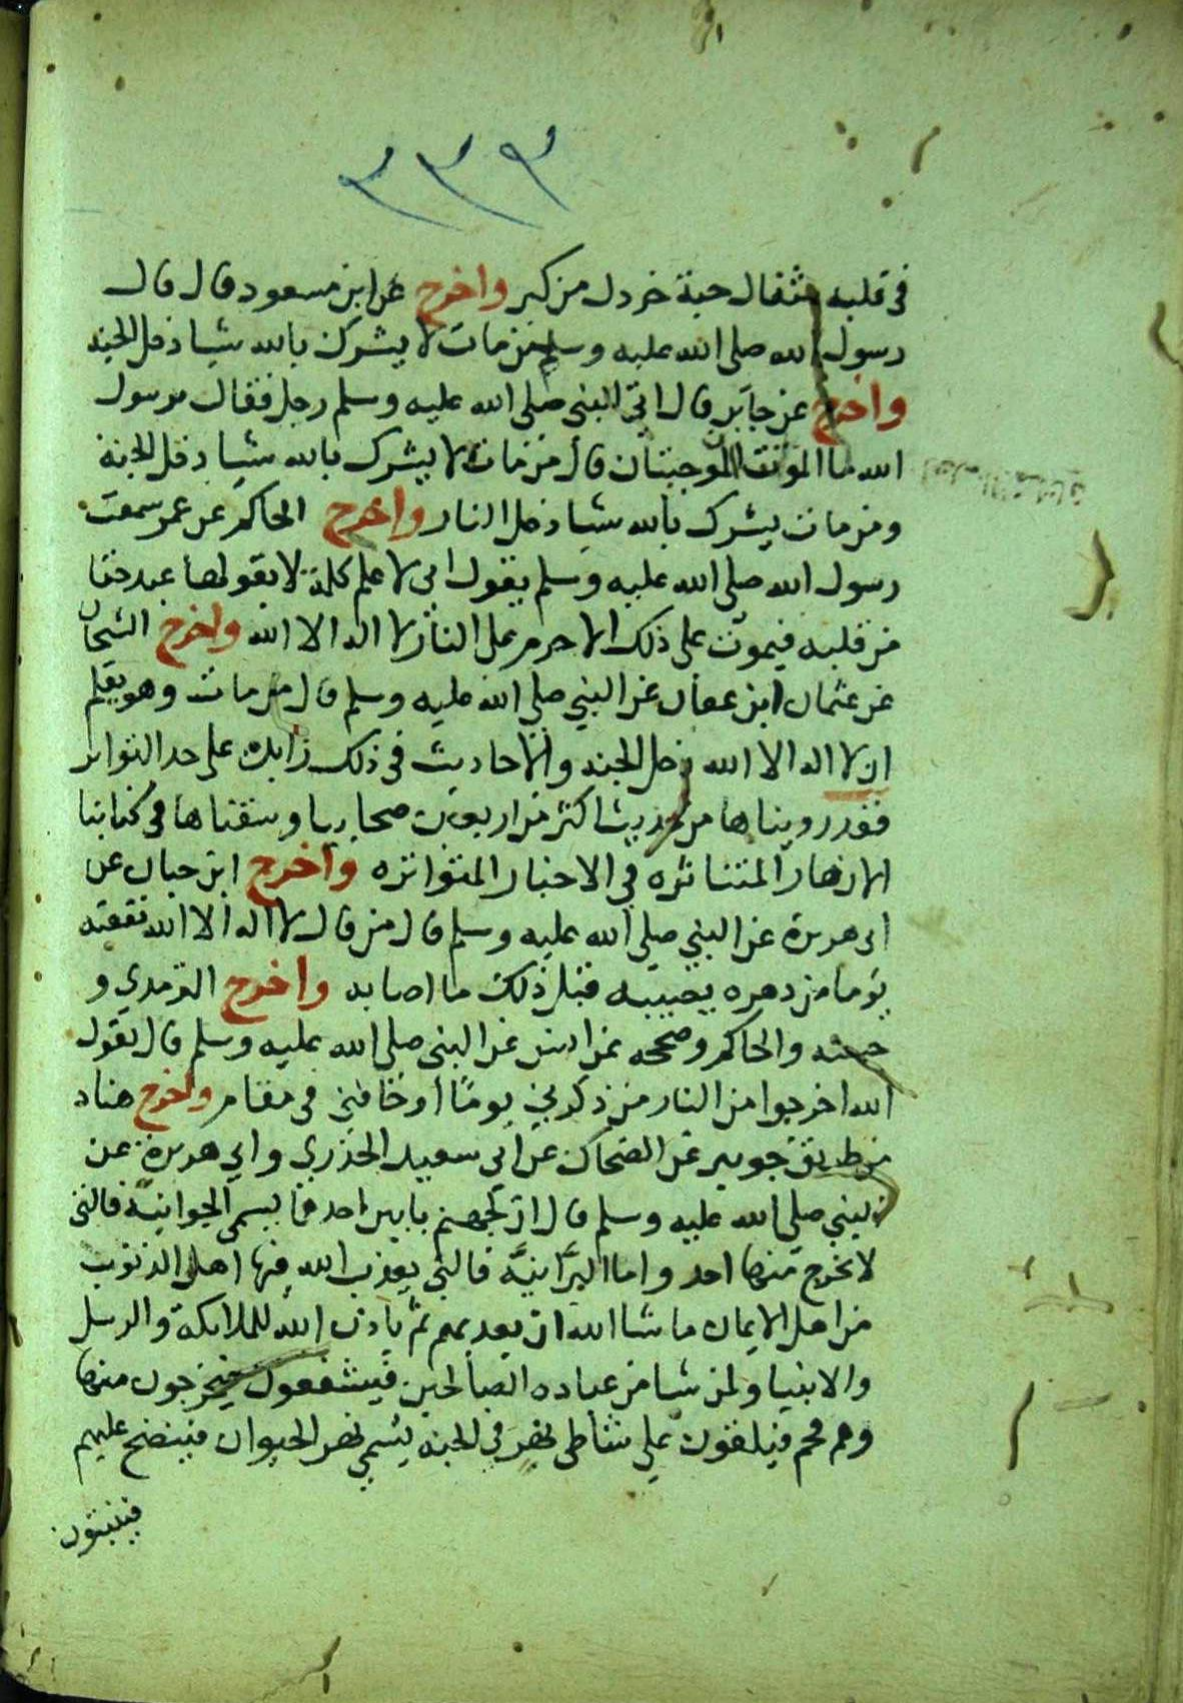 ٣٣٩
في قلبه مثقال حبة خردل من كبر واخرج عن ابن مسعود قال قال
رسول الله صلى الله عليه وسلم من مات لا يشرك بالله شيا دخل الجنه
واخرج عن جابر قال اتى النبي صلى الله عليه وسلم رجل فقال يرسول
الله ما الموجبتان قال من مات لا يشرك بالله شيا دخل الجنة
ومن مات يشرك بالله شيا دخل النار واخرج الحاكم عن عمر سمعت
رسول الله صلى الله عليه وسلم يقول اني لاعلم كلمة لا يقولها عبد حقا
من قلبه فيموت على ذلك الا حرم على النار لا اله الا الله واخرج الشيخان
عن عثمان ابن عفان عن النبي صلي الله عليه وسلم قال من مات وهو يعلم
ان لا اله الا الله دخل الجنه والاحاديث في ذلك زايده على حد التواتر
فقد رويناها من حديث اكثر من اربعين صحابيا وسقناها في كتابنا
الازهار المتناثره في الاخبار المتواتره واخرج ابن حبان عن
ابي هريرة عن النبي صلى الله عليه وسلم قال من قال لا اله الا الله نفعته
يوما من دهره يصيبه قبل ذلك ما اصابه واخرج الترمدي و
حسنه والحاكم وصححه عن انس عن النبي صلى الله عليه وسلم قال يقول
الله اخرجوا من النار من ذكرني يوماً او خافني في مقام واخرج هناد
من طريق جويبر عن الضحاك عن ابي سعيد الخدري وابي هريرة عن
النبي صلى الله عليه وسلم قال ان لجهنم بابين احدهما يسمى الجوانيّة فالتي
لا يخرج منها احد واما البرّانيّه فالتي يعذب الله فيها اهل الذنوب
من اهل الايمان ما شا الله ان يعذبهم ثم ياذن الله للملايكة والرسل
والانبيا ولمن شا من عباده الصالحين فيشفعون فيخرجون منها
وهم فحم فيلقون علي شاطي نهر في الجنه يسمي نهر الحيوان فينضح عليهم
فينبتون